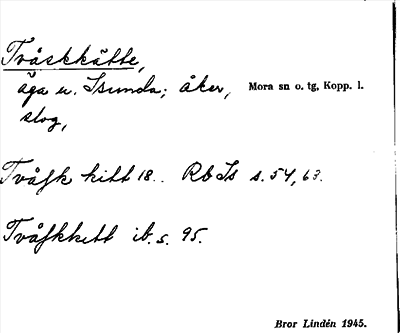 Tvåskkätte,
äga u. Isunda; åker, Mora sn o. tg, Kopp. l.
slog,
Tvåsk kitt 18.. Rb Is s. 54, 63.
Tvåskkett ib. s. 95.
Bror Lindén 1945.